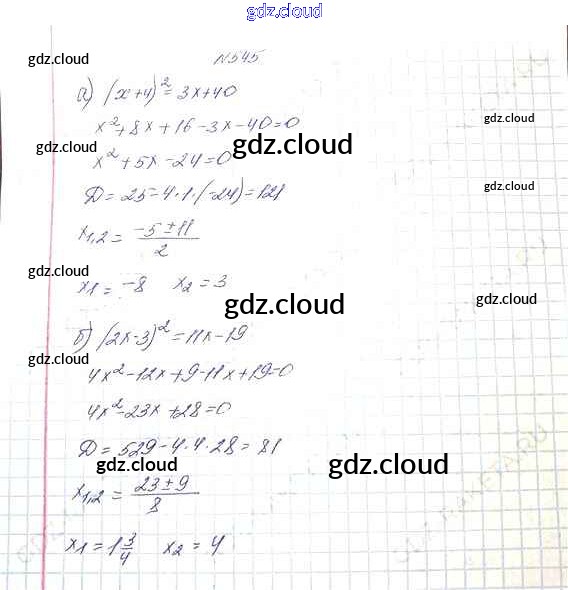 gdz.cloud
N545
gdz.cloud
а) (x+4)² = 3x+40
x²+8x+16-3x-40=0
gdz.cloud
gdz.cloud
gdz.cloud
x²+5x-24=0
gdz.cloud
D=25-4·1·(-24)=121
x1,2 = (-5±11)/2
gdz.cloud
x1=-8 x2=3
gdz.cloud
gdz.cloud
б) (2x-3)²=11x-19
gdz.cloud
4x²-12x+9-11x+19=0
4x²-23x+28=0
D=529-4·4·28=81
gdz.cloud
gdz.cloud
x1,2 = (23±9)/8
gdz.cloud
x1=1 3/4 x2=4